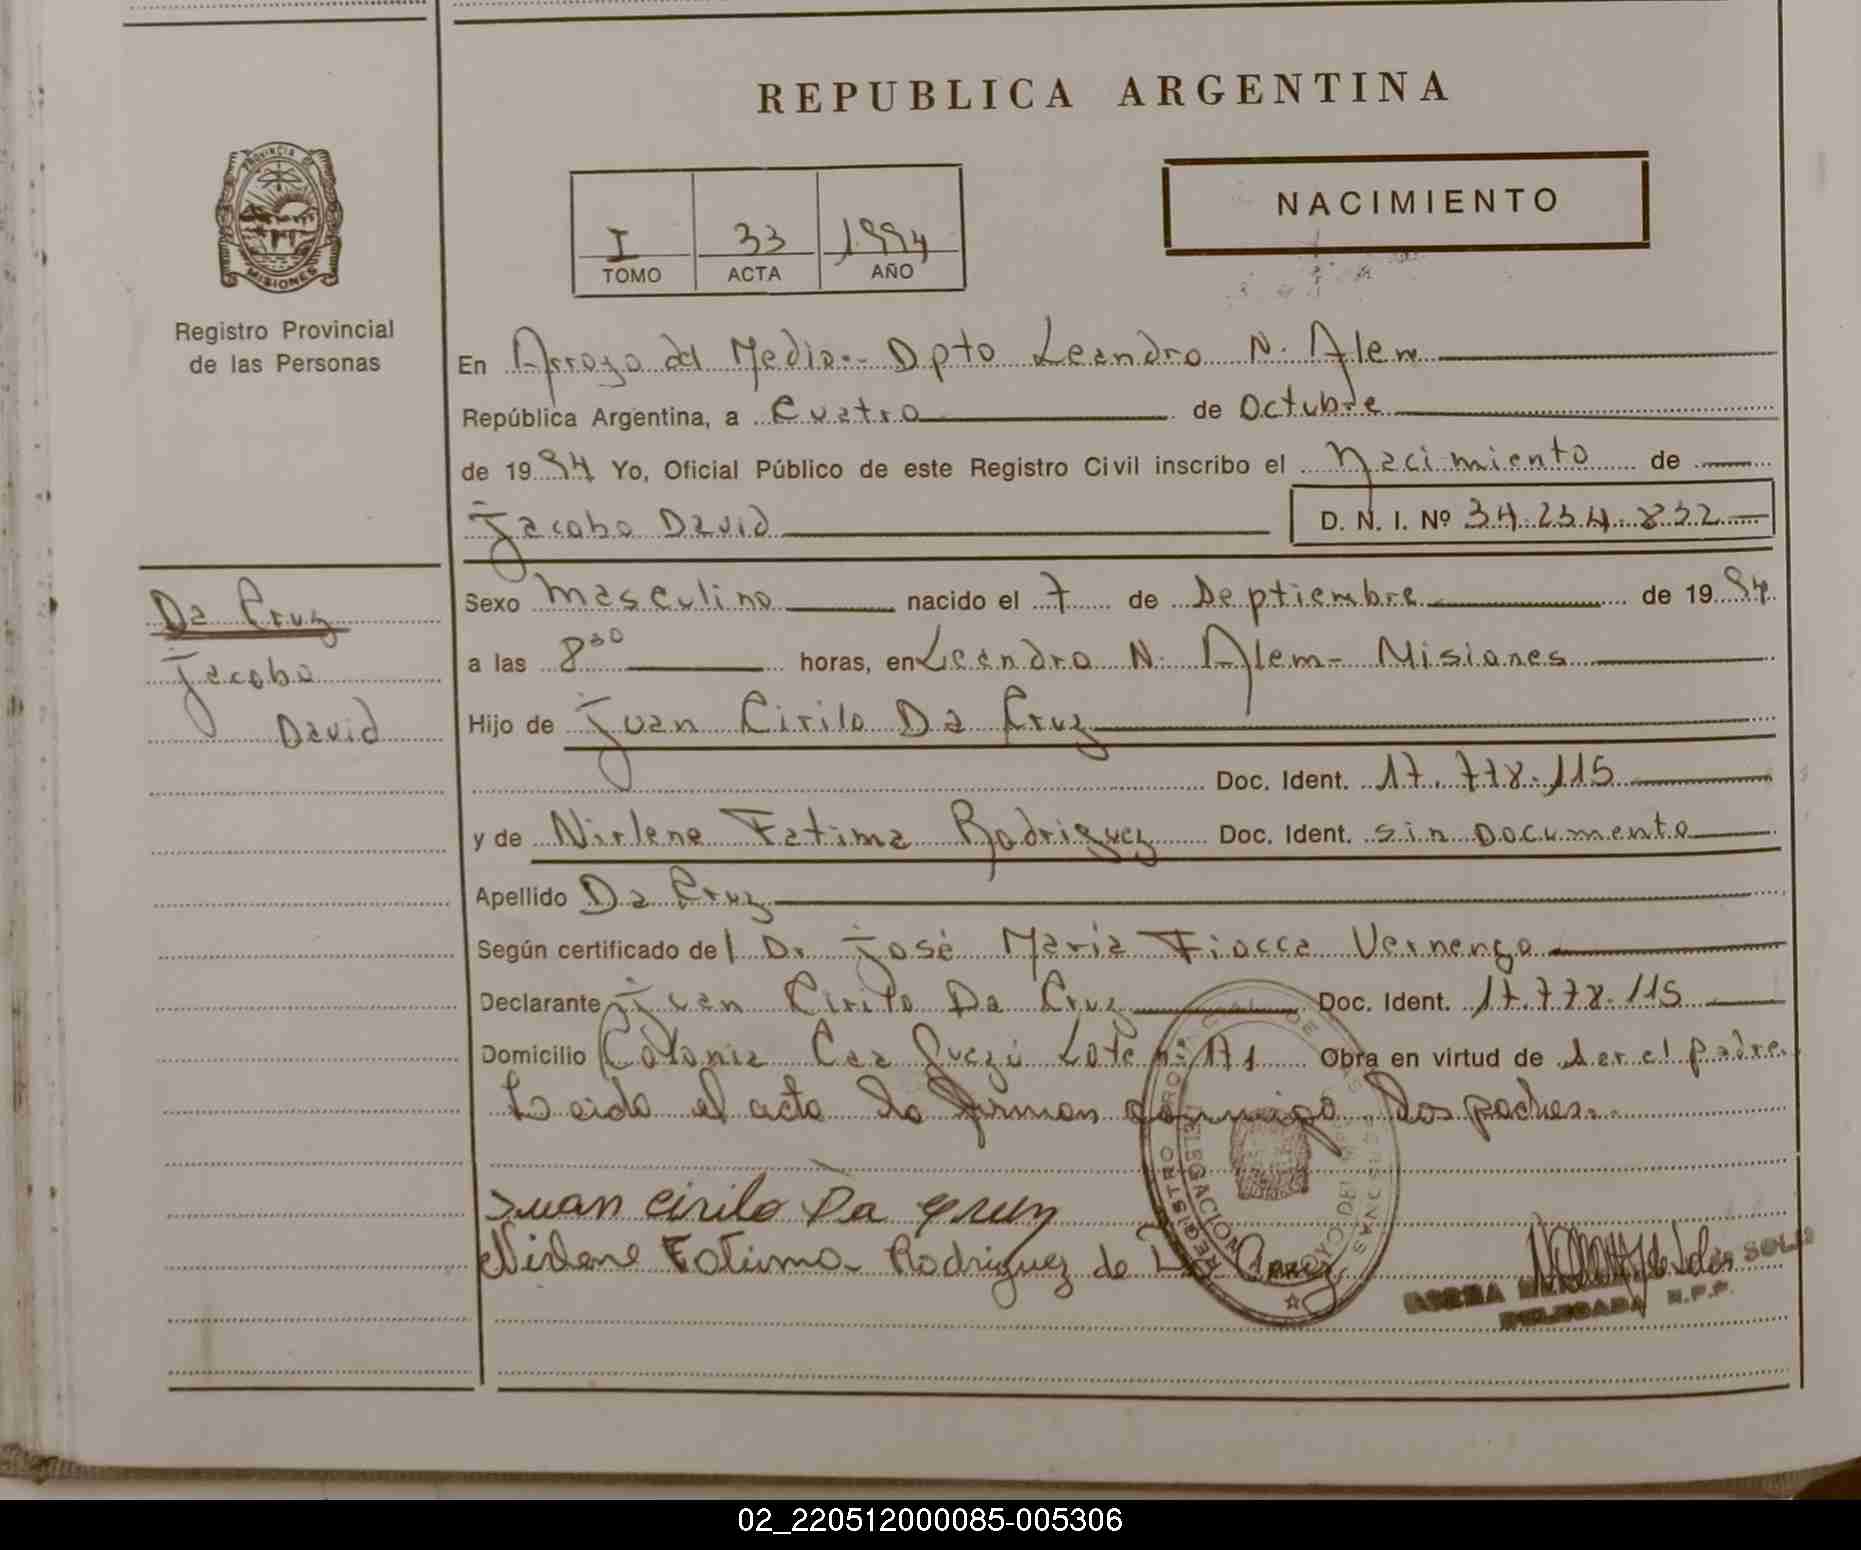 REPUBLICA ARGENTINA
PROVINCIA DE
MISIONES
Registro Provincial
de las Personas
I 33 1994
TOMO ACTA AÑO
NACIMIENTO
En Arroyo del Medio.- Dpto Leandro N. Alem
República Argentina, a Cuatro de Octubre
de 1994 Yo, Oficial Público de este Registro Civil inscribo el Nacimiento de
Jacobo David D. N. I. Nº 34.234.832
Da Cruz
Jacobo
David
Sexo Masculino nacido el 7 de Septiembre de 1994
a las 8 30 horas, en Leandro N. Alem - Misiones
Hijo de Juan Cirilo Da Cruz
Doc. Ident. 17.778.115
y de Nirlene Fatima Rodriguez Doc. Ident. sin Documento
Apellido Da Cruz
Según certificado del Dr. José Maria Fiocca Vernengo
Declarante Juan Cirilo Da Cruz Doc. Ident. 17.778.115
Domicilio Colonia Caa Guazú Lote nº Obra en virtud de ser el padre.
Leido el acta la firman conmigo los padres.
Juan Cirilo Da Cruz
Nirlene Fatima Rodriguez de Da Cruz
REGISTRO DE LAS PERSONAS
DELEGACION ARROYO DEL MEDIO
DELEGADA R.P.P.
02_220512000085-005306